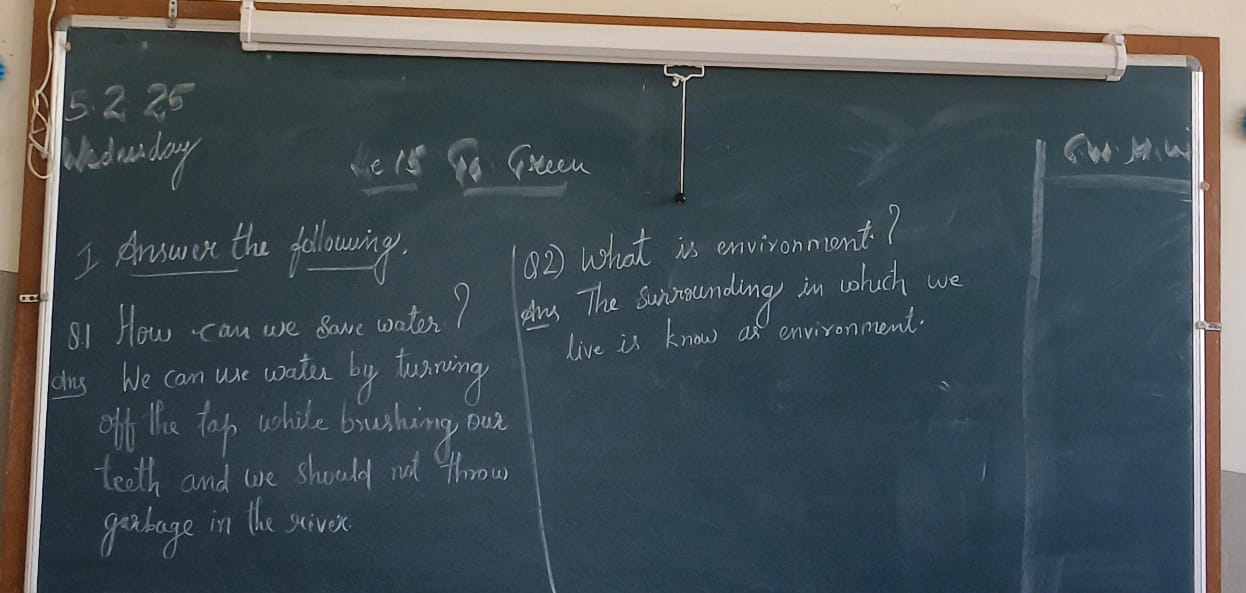 5.2.25
Wednesday
Le 15 Go Green
C.W. H.W
I Answer the following.
Q.1 How can we save water?
Ans We can use water by turning
off the tap while brushing our
teeth and we should not throw
garbage in the river.
Q2) What is environment?
Ans The surrounding in which we
live is know as environment.